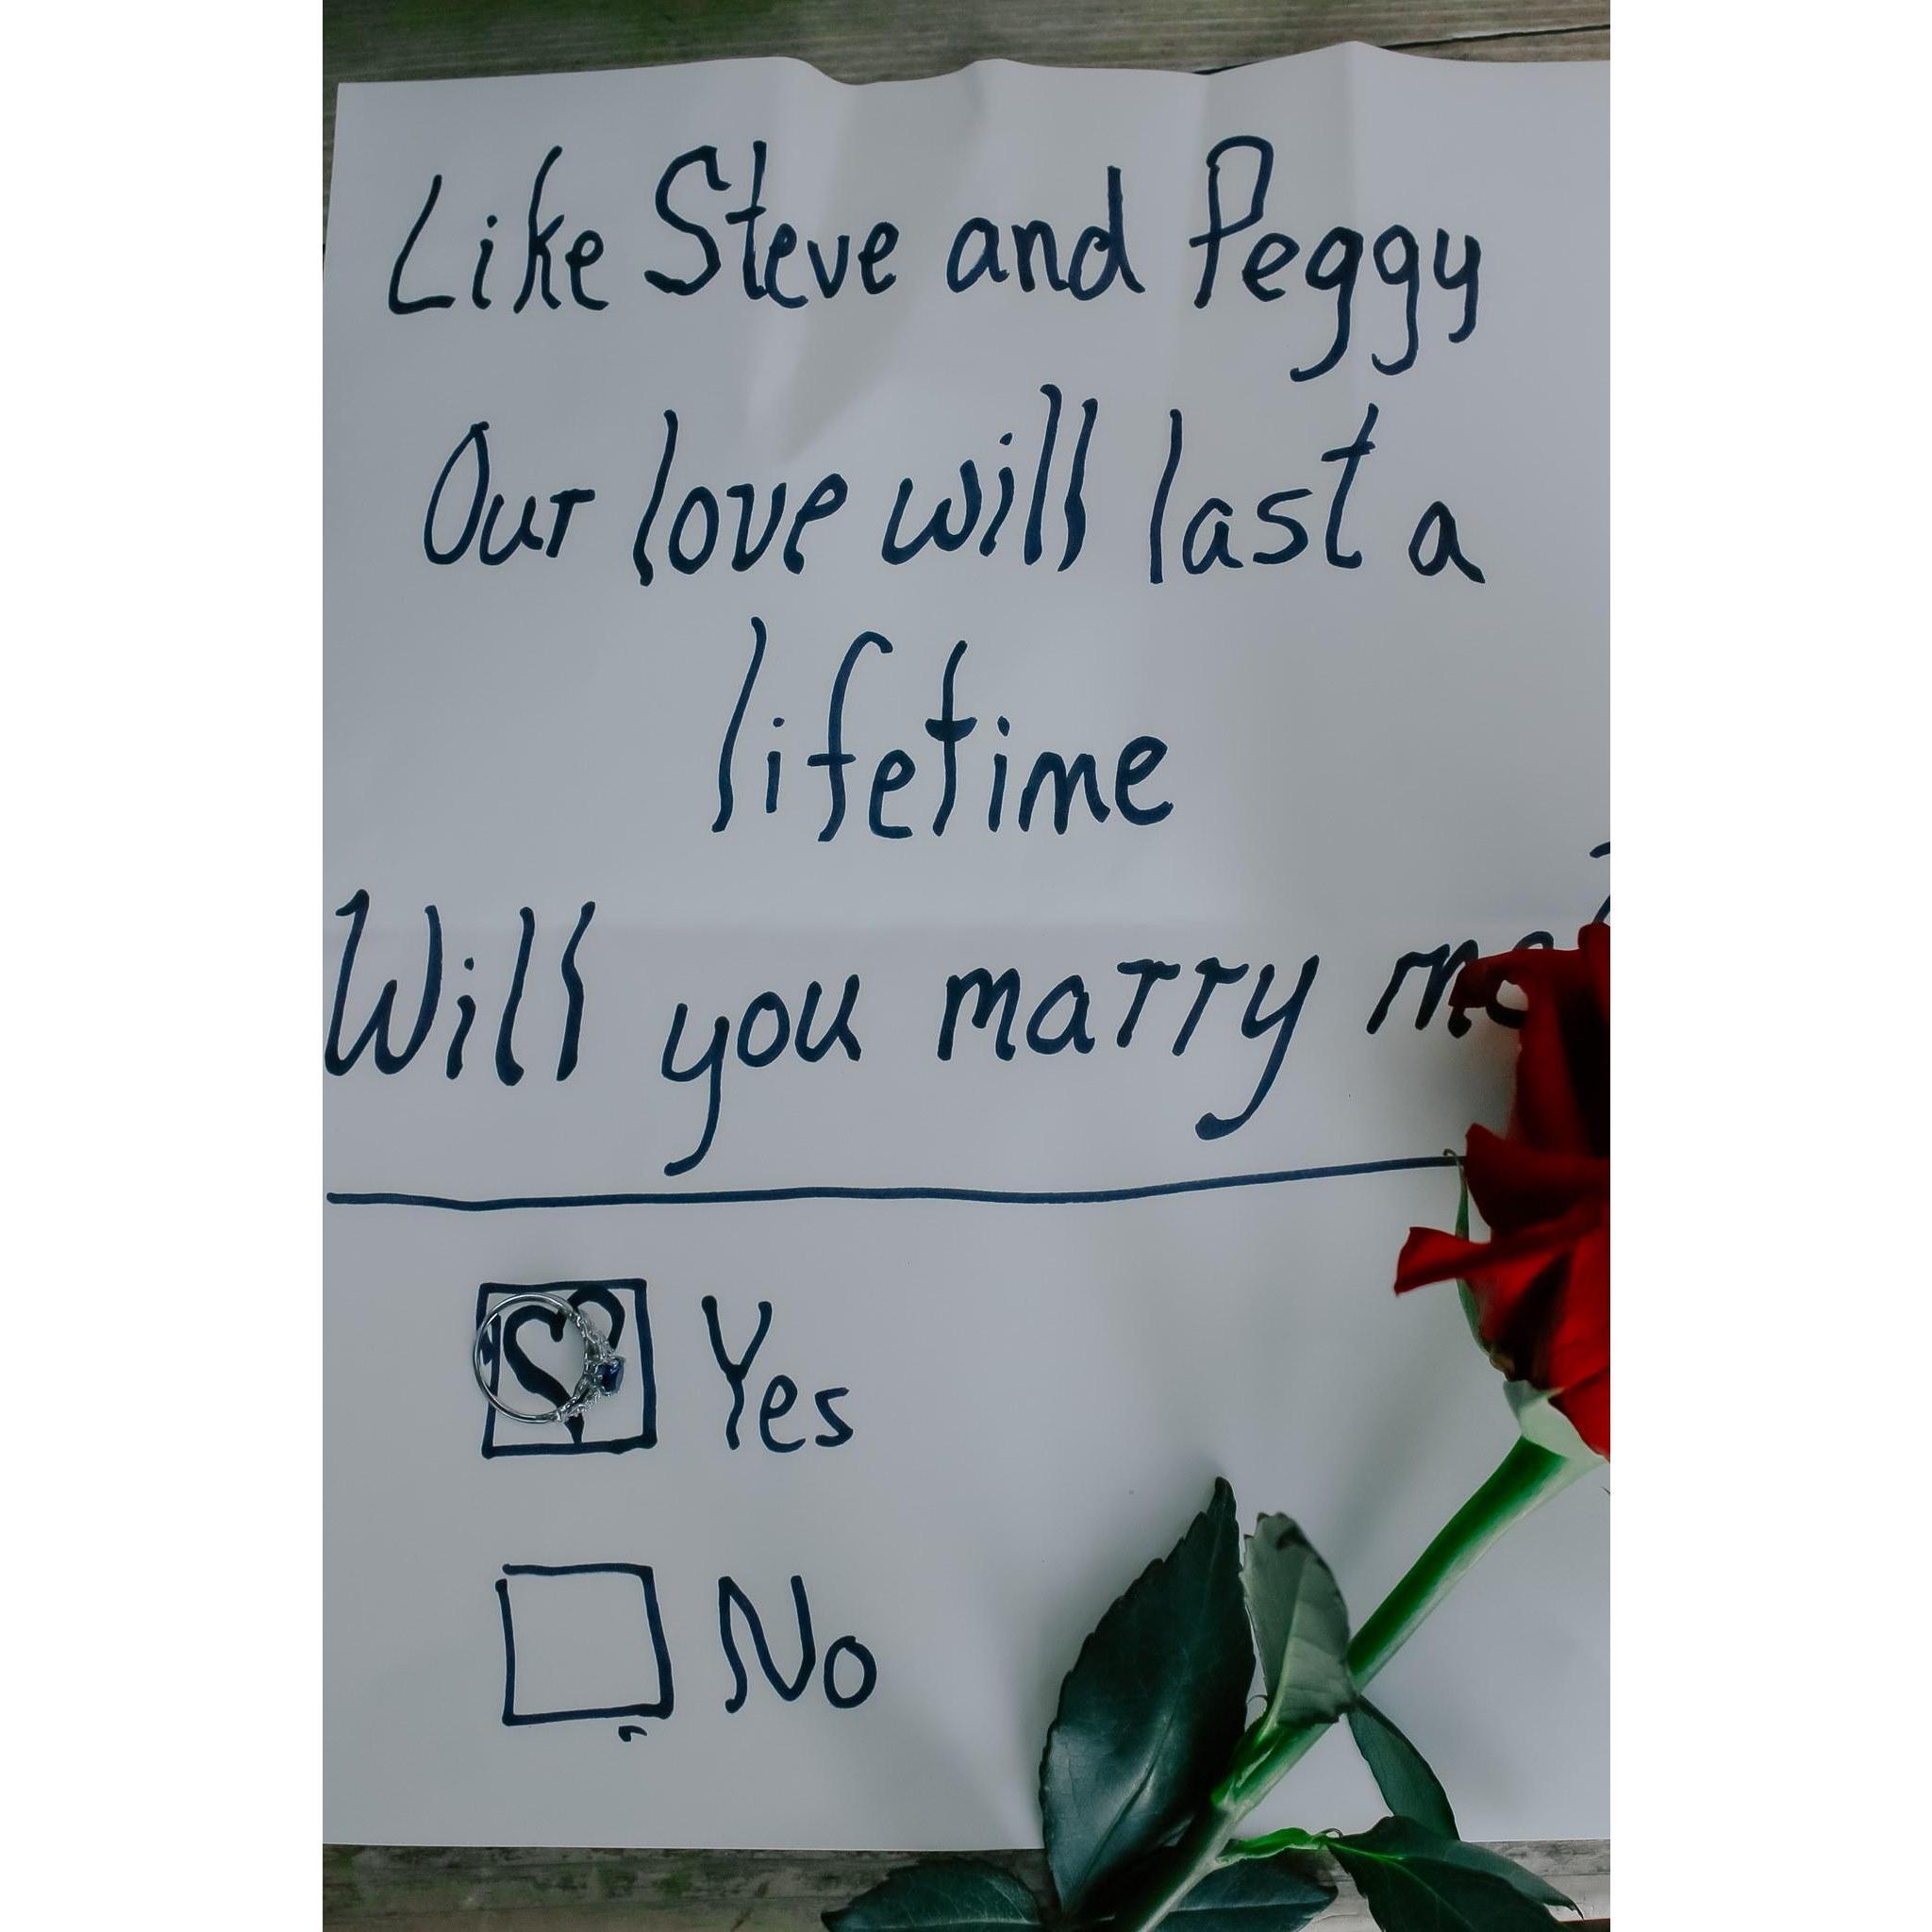 Like Steve and Peggy
Our love will last a
lifetime
Will you marry me?
Yes
No